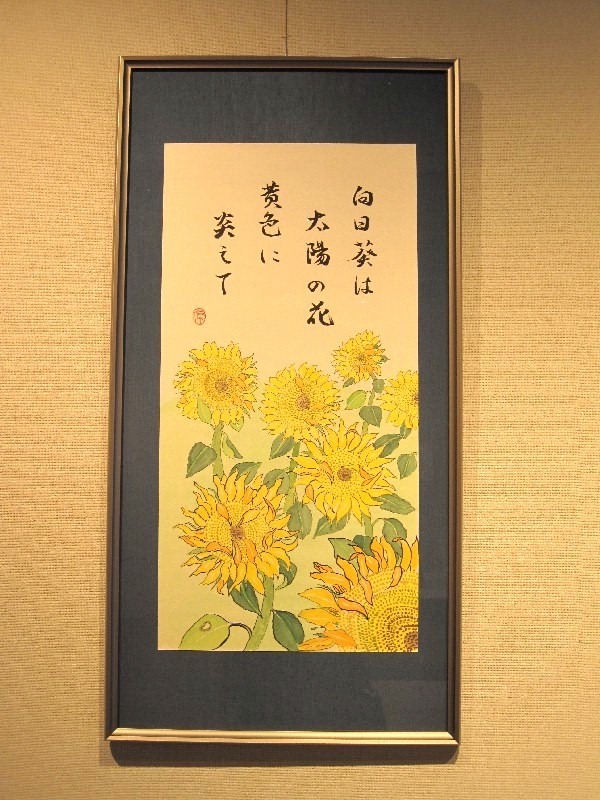 向日葵は
太陽の花
黄色に
炎えて